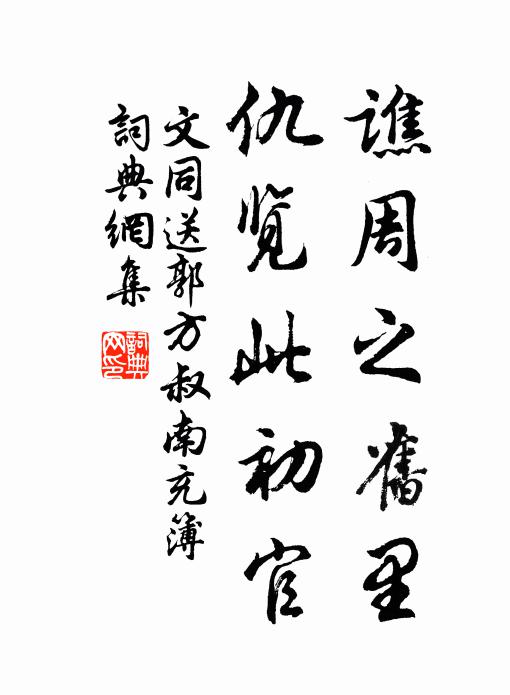 譙周之舊里
仇覽此初官
文同送郭方叔南充簿
詞典網集
詞典网印